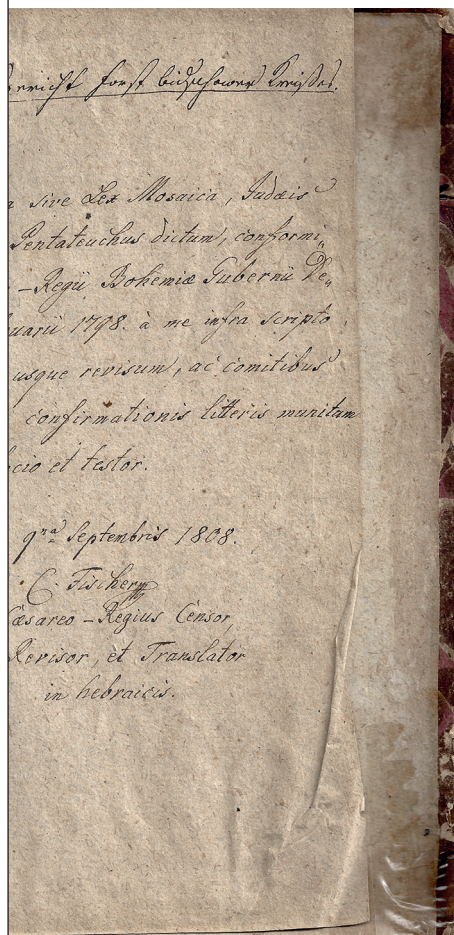 forst bidschower Kreißes.
sive Lex Mosaica, Judæis
Pentateuchus dictum, conformi„
-Regii Bohemiæ Gubernii De„
uarii 1798. à me infra scripto
usque revisum, ac comitibus
confirmationis litteris munitam
cio et testor.
9na Septembris 1808.
C. Fischer
Cæsareo-Regius Censor,
Revisor, et Translator
in hebraicis.